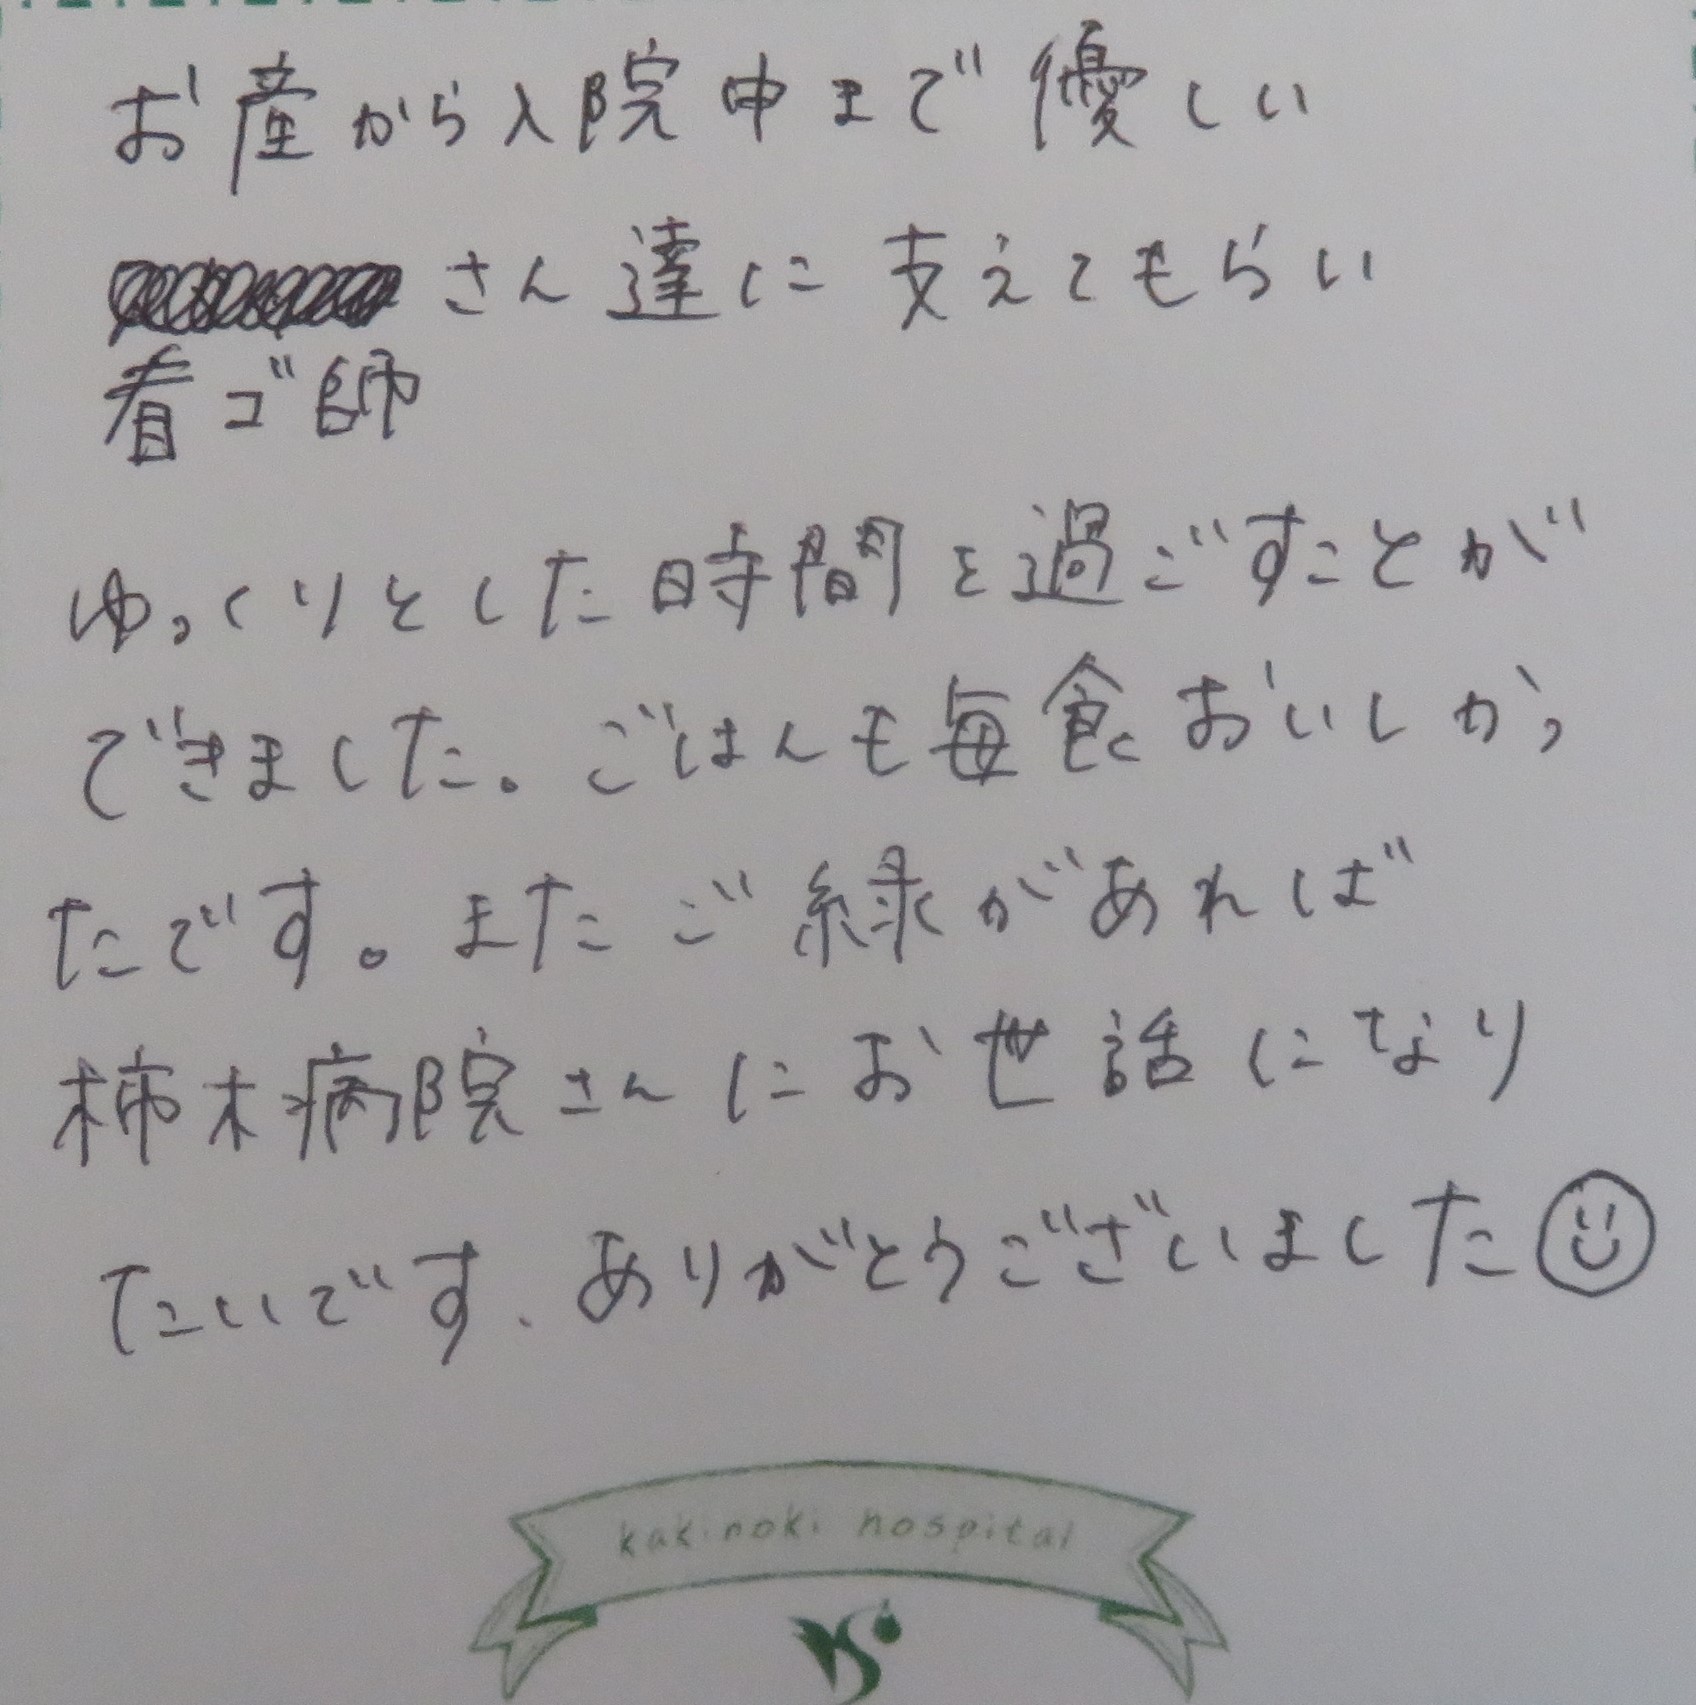 お産から入院中まで優しい
さん達に支えてもらい
看ゴ師
ゆっくりとした時間を過ごすことが
できました。ごはんも毎食おいしかっ
たです。またご緑があれば
柿木病院さんにお世話になり
たいです、ありがとうございました
kakinoki hospital